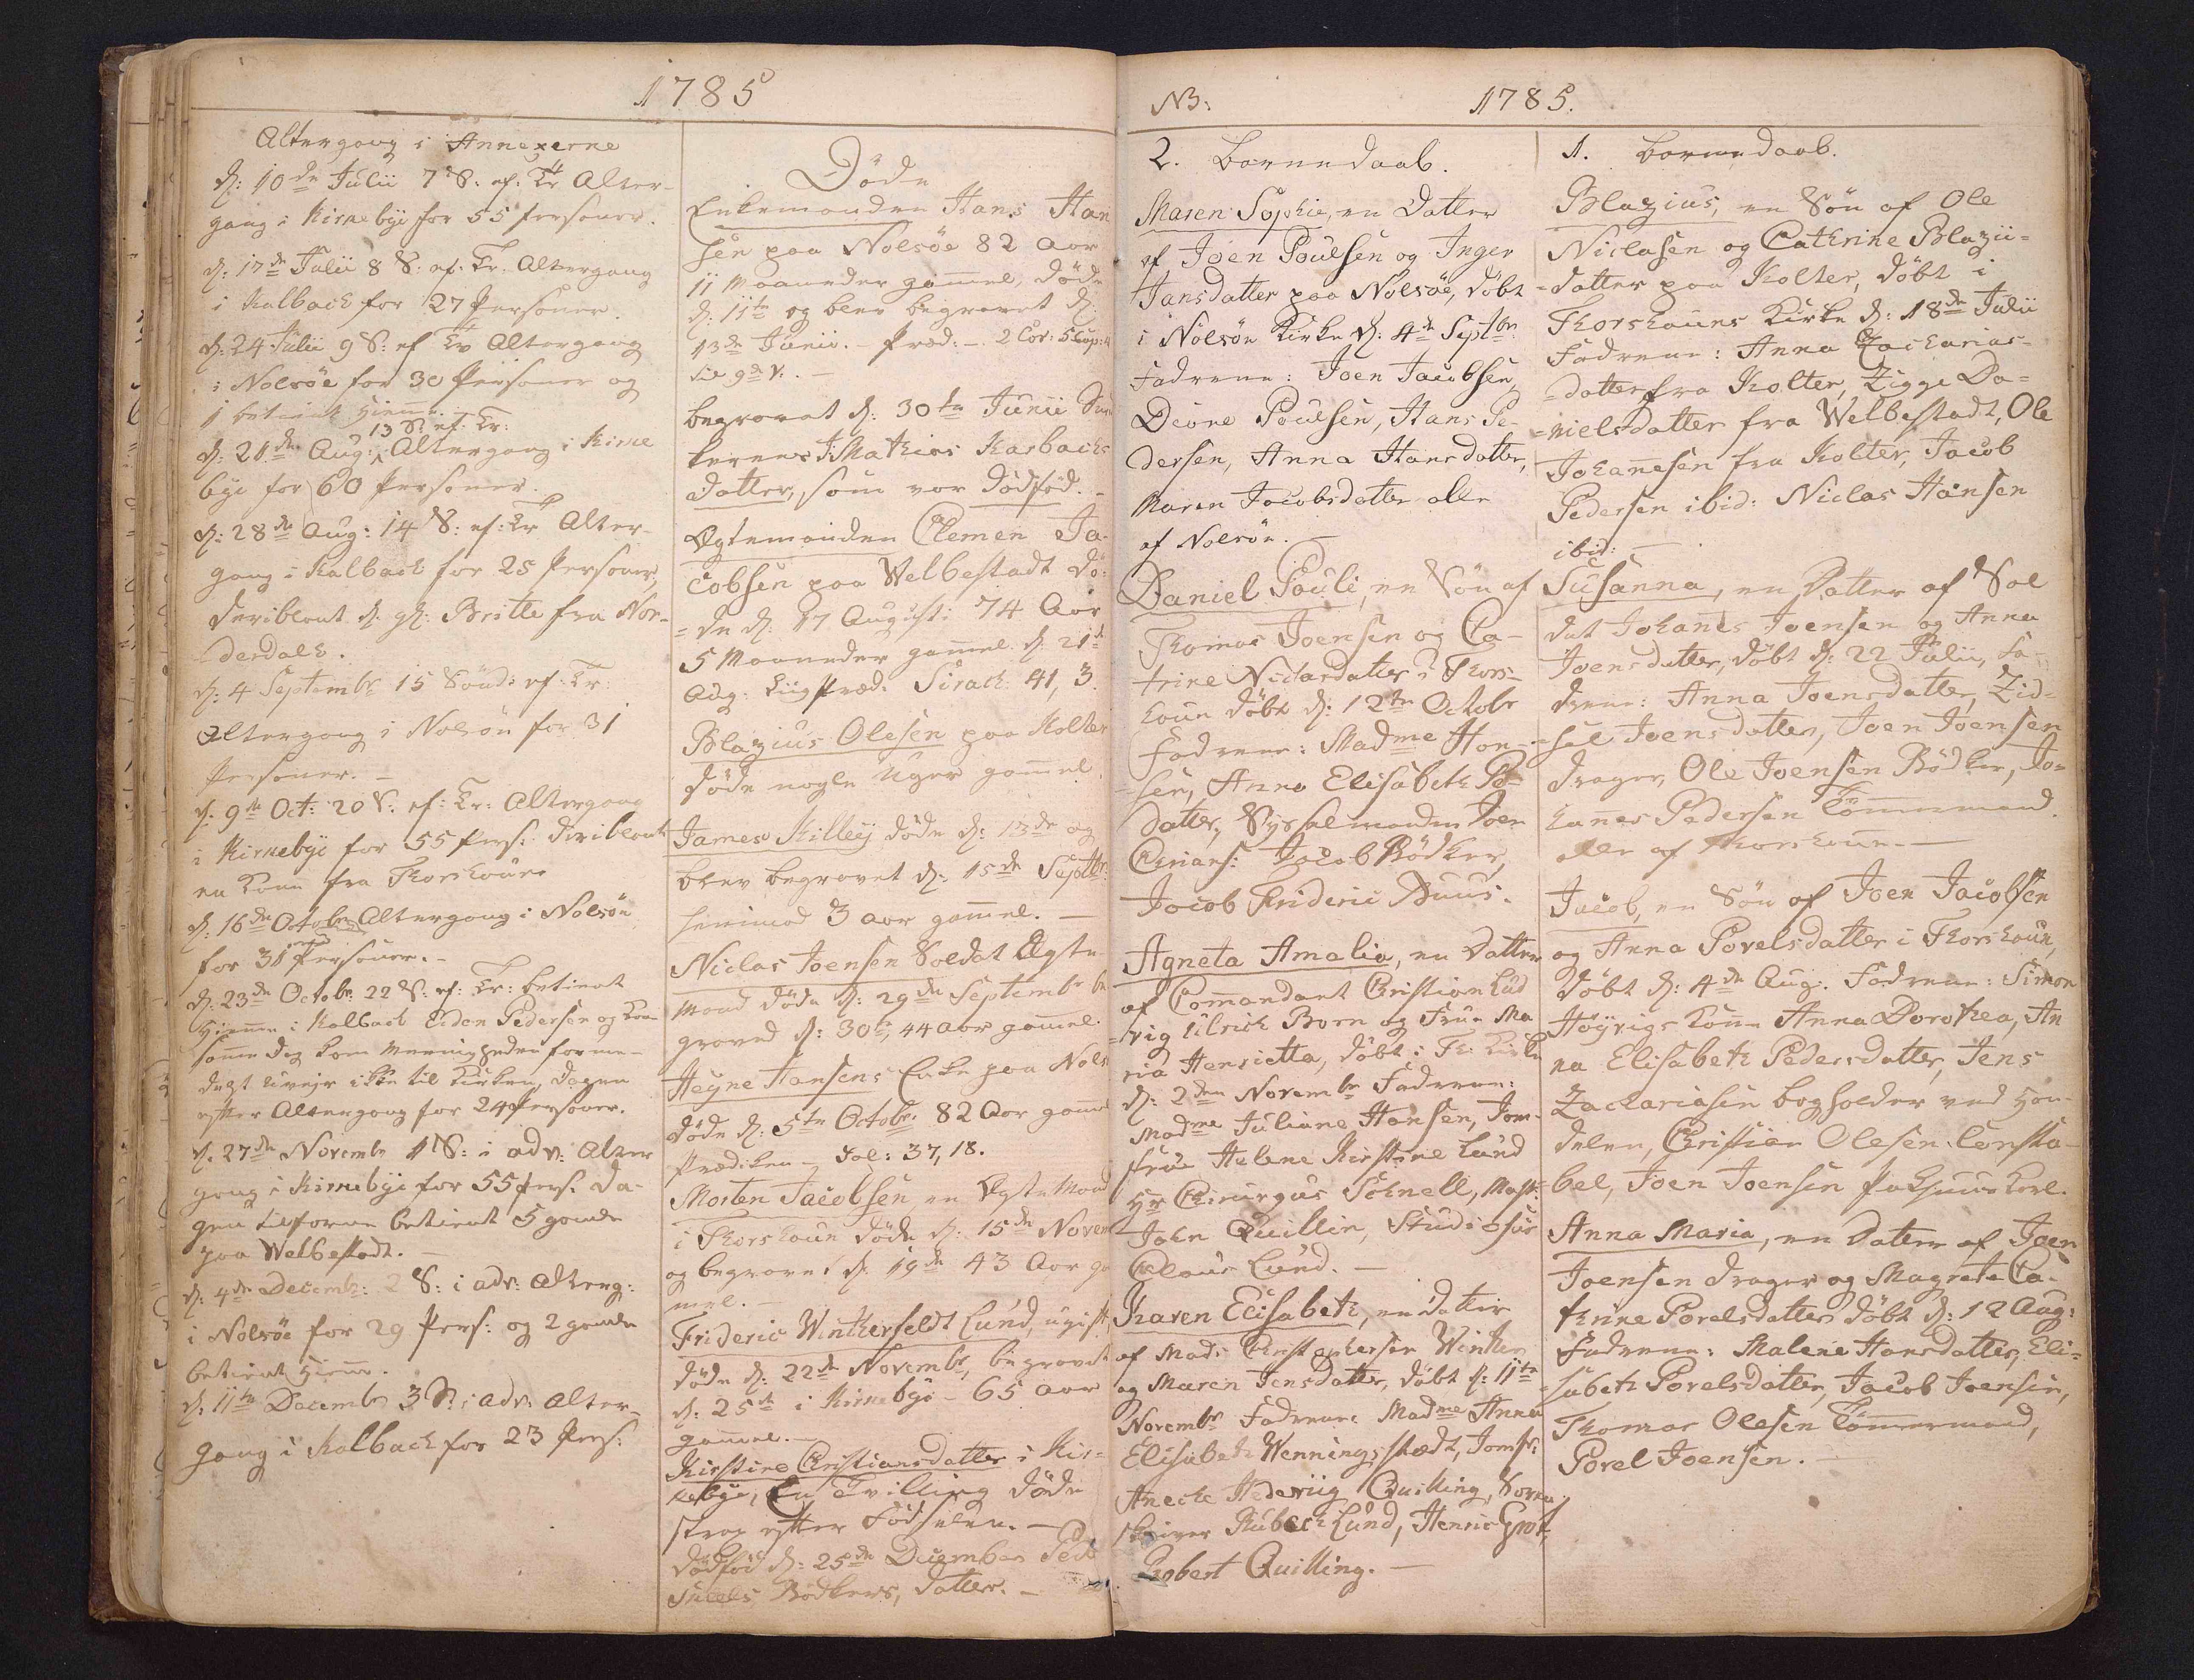 1785
Altergang i Annexerne
d: 10de Julii 7 S: ef: Tr Alter-
gang i Kirkebye for 55 personer.
d: 17de Julii 8 S: ef: Tr. Altergang
i Kalback for 27 Personer.
d: 24 Julii 9 S: ef Tr Altergang
i Nolsöe for 30 Personer og
1 betient hiemme.
13 S: ef: Tr:
d: 21de Aug: Altergang i Kirke
bye for 60 Personer.
d: 28de Aug: 14 S: ef: Tr Alter-
gang i Kalback for 25 Personer,
deriblant d. gl: Britte fra Nor-
derdale.
d: 4 Septembr 15 Sönd: ef: Tr:
Altergang i Nolsöe for 31
Personer. -
d. 9de Oct: 20 S. ef: Tr: Altergang
i Kirkebye for 55 Pers: deriblant
en Kone fra Thorshavn
d: 16de Octobr Altergang i Nolsöe
for 31 Personer. -
d: 23de Octobr: 22 S: ef: Tr: betient
hiemme i Kalback Eiden Pedersen og Kone
samme dag kom Menigheden forme-
delst uveir ikke til Kirken, dagen
efter Altergang for 24 Personer.
d. 27de Novembr 1 S: i adv: Alter
gang i Kirkebye for 55 Pers: Da-
gen tilforne betient 5 gamle
paa Welbestadt. -
d: 4de Decembr: 2 S: i adv: Alterg:
i Nolsöe for 29 Pers: og 2 gamle
betient hiemme.
d. 11te Decembr 3 S: i adv: Alter-
gang i Kalback for 23 Pers:
Döde
Enkemanden Hans Han
sen paa Nolsöe 82 Aar
11 Maaneder gammel, döde
d: 11te og blev begravet d:
13de Junii. - Præd: - 2 Cor: 5 Cap:
die 9de V. -
begravet d: 30te Junii
J: Mathias Karbachs
datter, som var dödföd. -
Ægtemanden Clemen Ja-
cobsen paa Welbestadt dö-
=de d: 17 August: 74 Aar
5 Maaneder gammel d. 21de
Aug: Liigpræd: Sirach 41, 3.
Blazius Olesen paa Kolter
döde nogle Uger gammel.
James Killey döde d: 13de og
blev begravet d: 15de Septbr:
henimod 3 aar gammel. -
Niclas Joensen Soldat Ægte
mand döde d: 29de Septembr be
graved d: 30te, 44 Aar gammel.
Heyne Hansens Enke paa Nols
döde d: 5te Octobr: 82 Aar gammel
Prædiken - Sal: 37, 18.
Morten Jacobsen, en Ægte Mand
i Thorshavn döde d: 15de Novem
og begravet d. 19de 43 Aar ga
mel. -
Frideric Wintherfeldt Lund, ugift,
döde d: 22de Novembr, begravet
d: 25de i Kirkebye - 65 aar
gammel. -
Kirstine Christiansdatter i Kir=
kebye, En Tvilling döde
strax efter Födselen. -
Dödföd d: 25de December
Bödkers, datter. -
NB:
1785.
2. Börne Daab.
Maren Sophie, en Datter
af Joen Poulsen og Inger
Hansdatter paa Nolsöe, döbt
i Nolsöe Kirke d: 4de Septbr
Fadrene: Joen Jacobsen,
Dione Poulsen, Hans Pe-
dersen, Anna Hansdatter,
Maren Jacobsdatter alle
af Nolsöe. -
Daniel Pauli, en Sön af
Thomas Joensen og Ca-
trine Niclasdatter i Thors-
havn döbt d: 12te Octobr
Fadrene: Madme Han-
sen, Anna Elisabeth Po-
datter, Sysselmanden Joen
Christians: Jacob Bödker,
Jacob Frideric Duus.
Agneta Amalia, en Datter
af Commandant Christian Lud
vig Ulrich Born og Frue Ma
ria Henrietta, döbt i Th: Kirke
d: 2den Novembr Fadrene:
Madme Juliane Hansen, Jom-
frue Helene Kirstine Lund
Hr Chirurgus Schnell, Mast:
John Quillin, Studiosus
Claus Lund. -
Karen Elisabeth, en datter
af Mads Christophersen Winther
og Maren Jensdatter, döbt d: 11te
Novembr Fadrene: Madme Anna
Elisabeth Wenningstædt, Jomfr:
Anecke Hedevig Quilling, Soren-
skriver Rübeck Lund, Henric Grot,
Robert Quilling. -
1785.
1. Börne Daab.
Blazius, en Sön af Ole
Niclasen og Cathrine Blazii=
=datter paa Kolter, döbt i
Thorshauns Kirke d: 18de Julii
Fadrene: Anna Zacharias-
=datter fra Kolter, Zigge Da=
=nielsdatter fra Welbestadt, Ole
Johannesen fra Kolter, Jacob
Pedersen ibid: Niclas Hansen
ibid: -
Susanna, en Datter af Sol
dat Johanes Joensen og Anna
Joensdatter, döbt d: 22 Julii, Fa-
drene: Anna Joensdatter, Zid=
=sel Joensdatter, Joen Joensen
Drager, Ole Joensen Bödker, Jo=
hannes Pedersen Tömmermand
alle af Thorshavn. -
Jacob, en Sön af Joen Jacobsen
og Anna Povelsdatter i Thorshavn,
döbt d: 4de Aug: Fadrene: Simon
Höyrigs Kone Anna Dorothea, An
na Elisabeth Pedersdatter, Jens
Zachariasen bogholder ved Han-
delen, Christian Olesen Consta-
bel, Joen Joensen Pakhuuskarl.
Anna Maria, en Datter af Joen
Joensen Drager og Magrete Ca-
thrine Povelsdatter döbt d: 12 Aug:
Fadrene: Malene Hansdatter, Eli=
=sabeth Povelsdatter, Jacob Joensen,
Thomas Olesen Tömmermand,
Povel Joensen. -